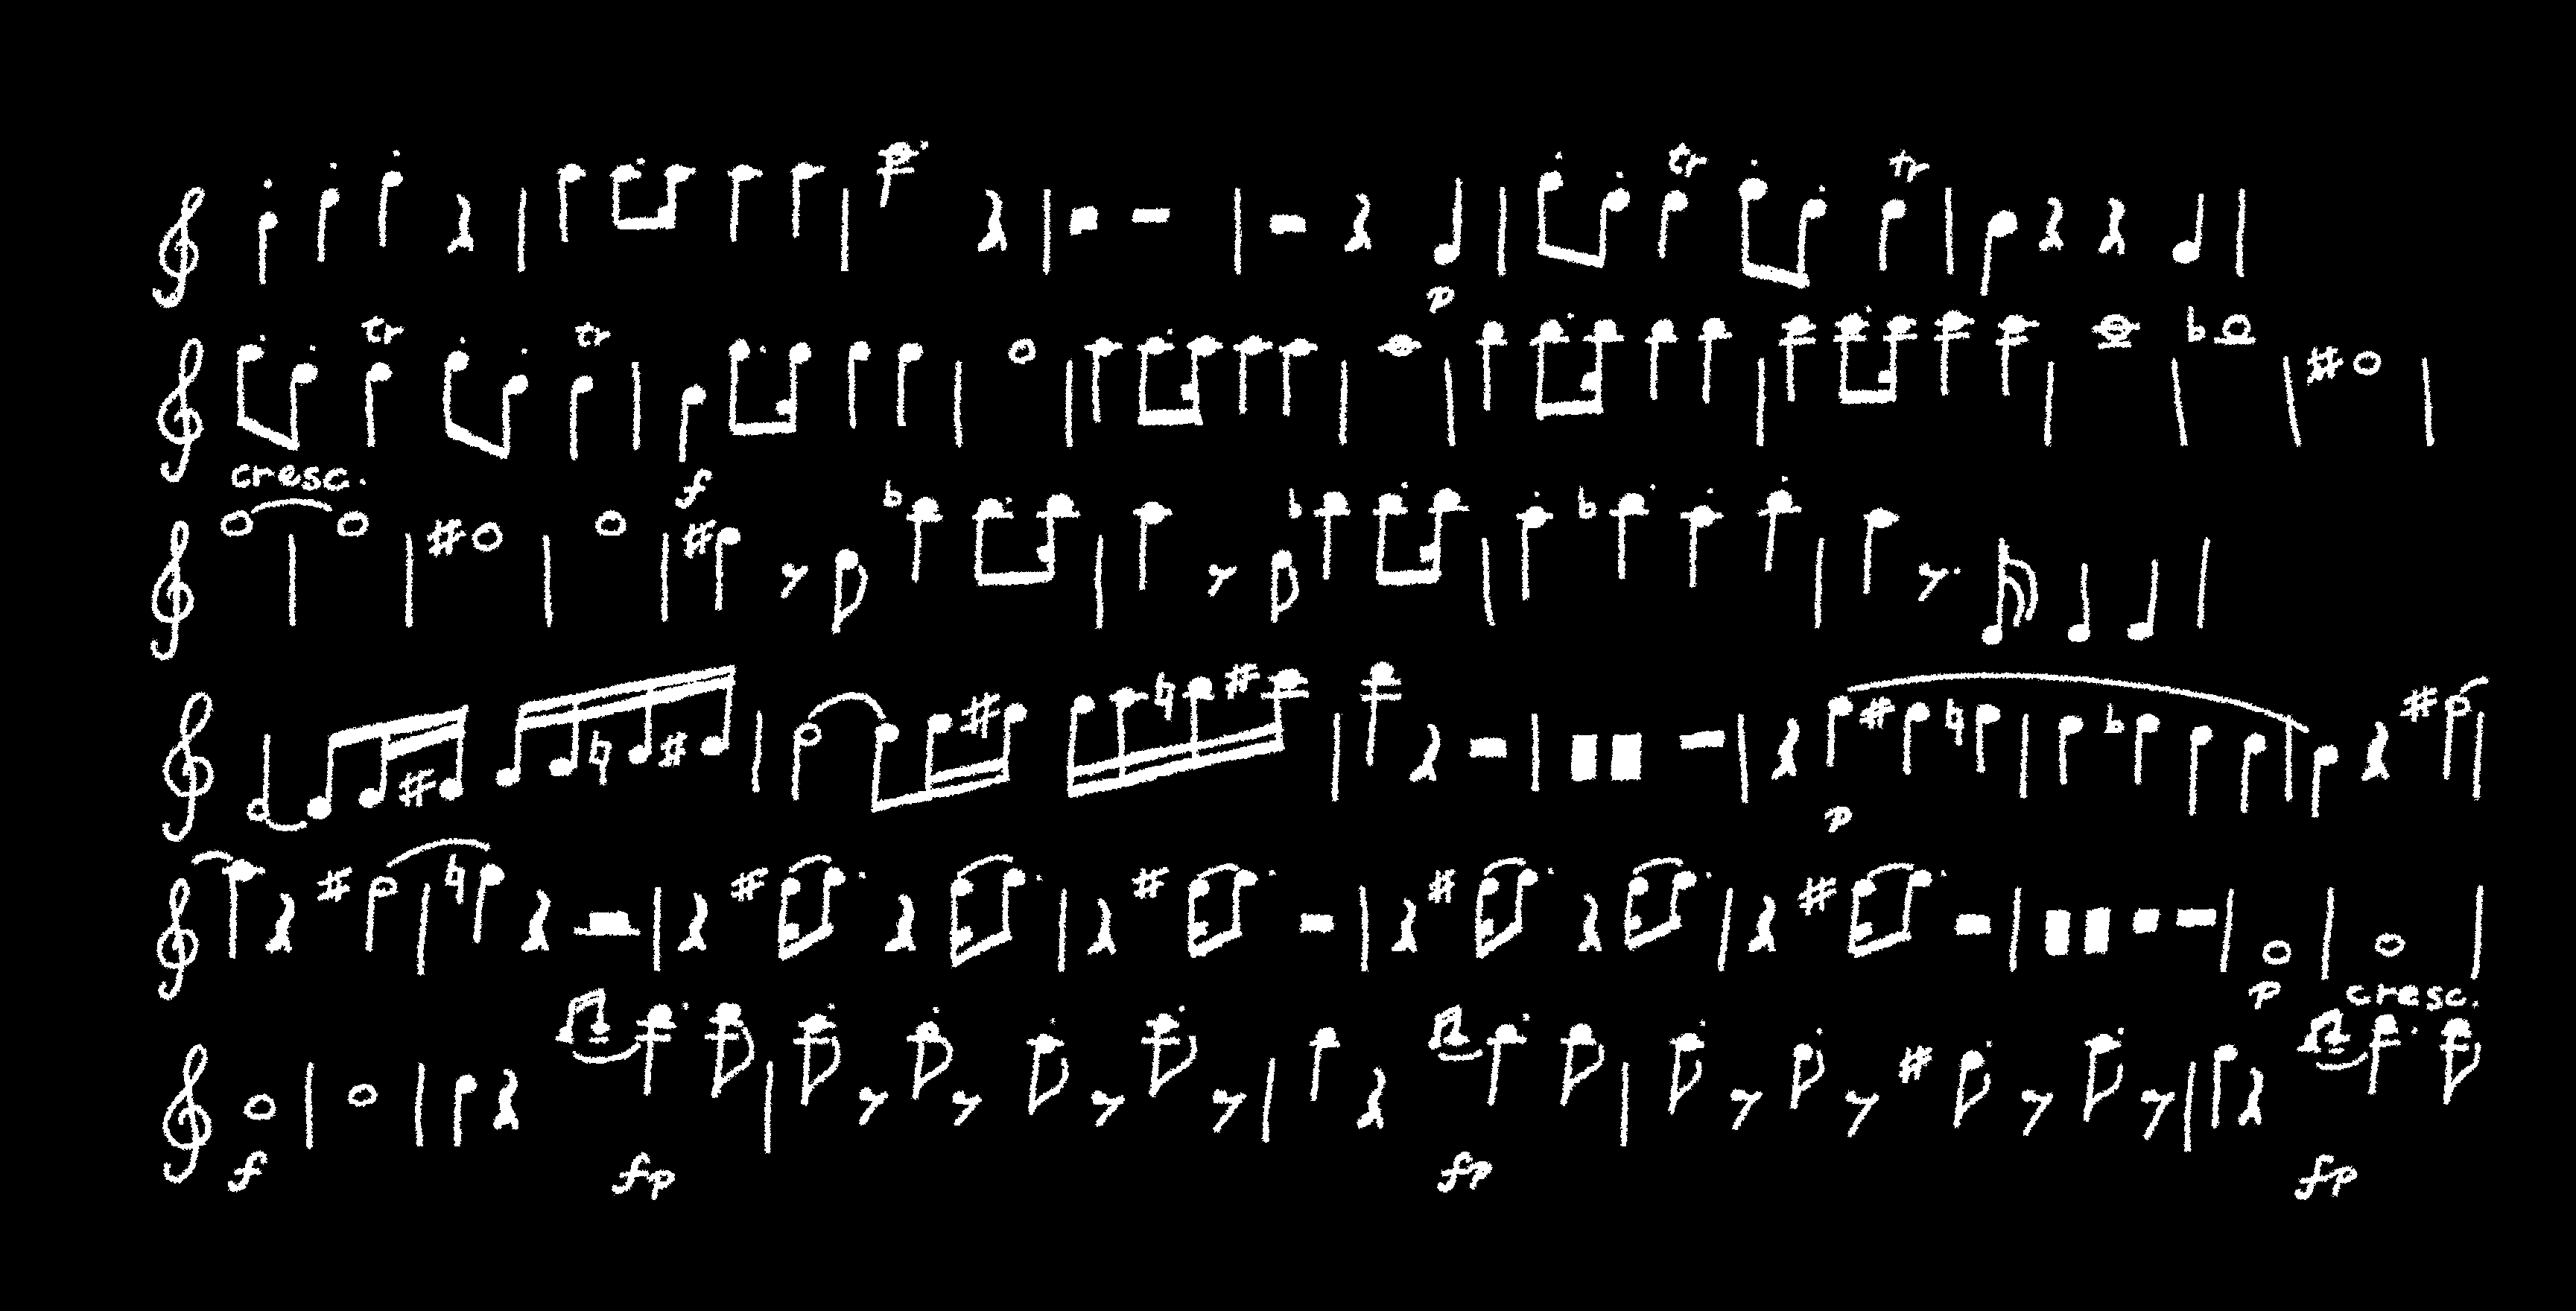 tr tr
p
tr tr
cresc. f
p
p cresc.
f fp fp fp